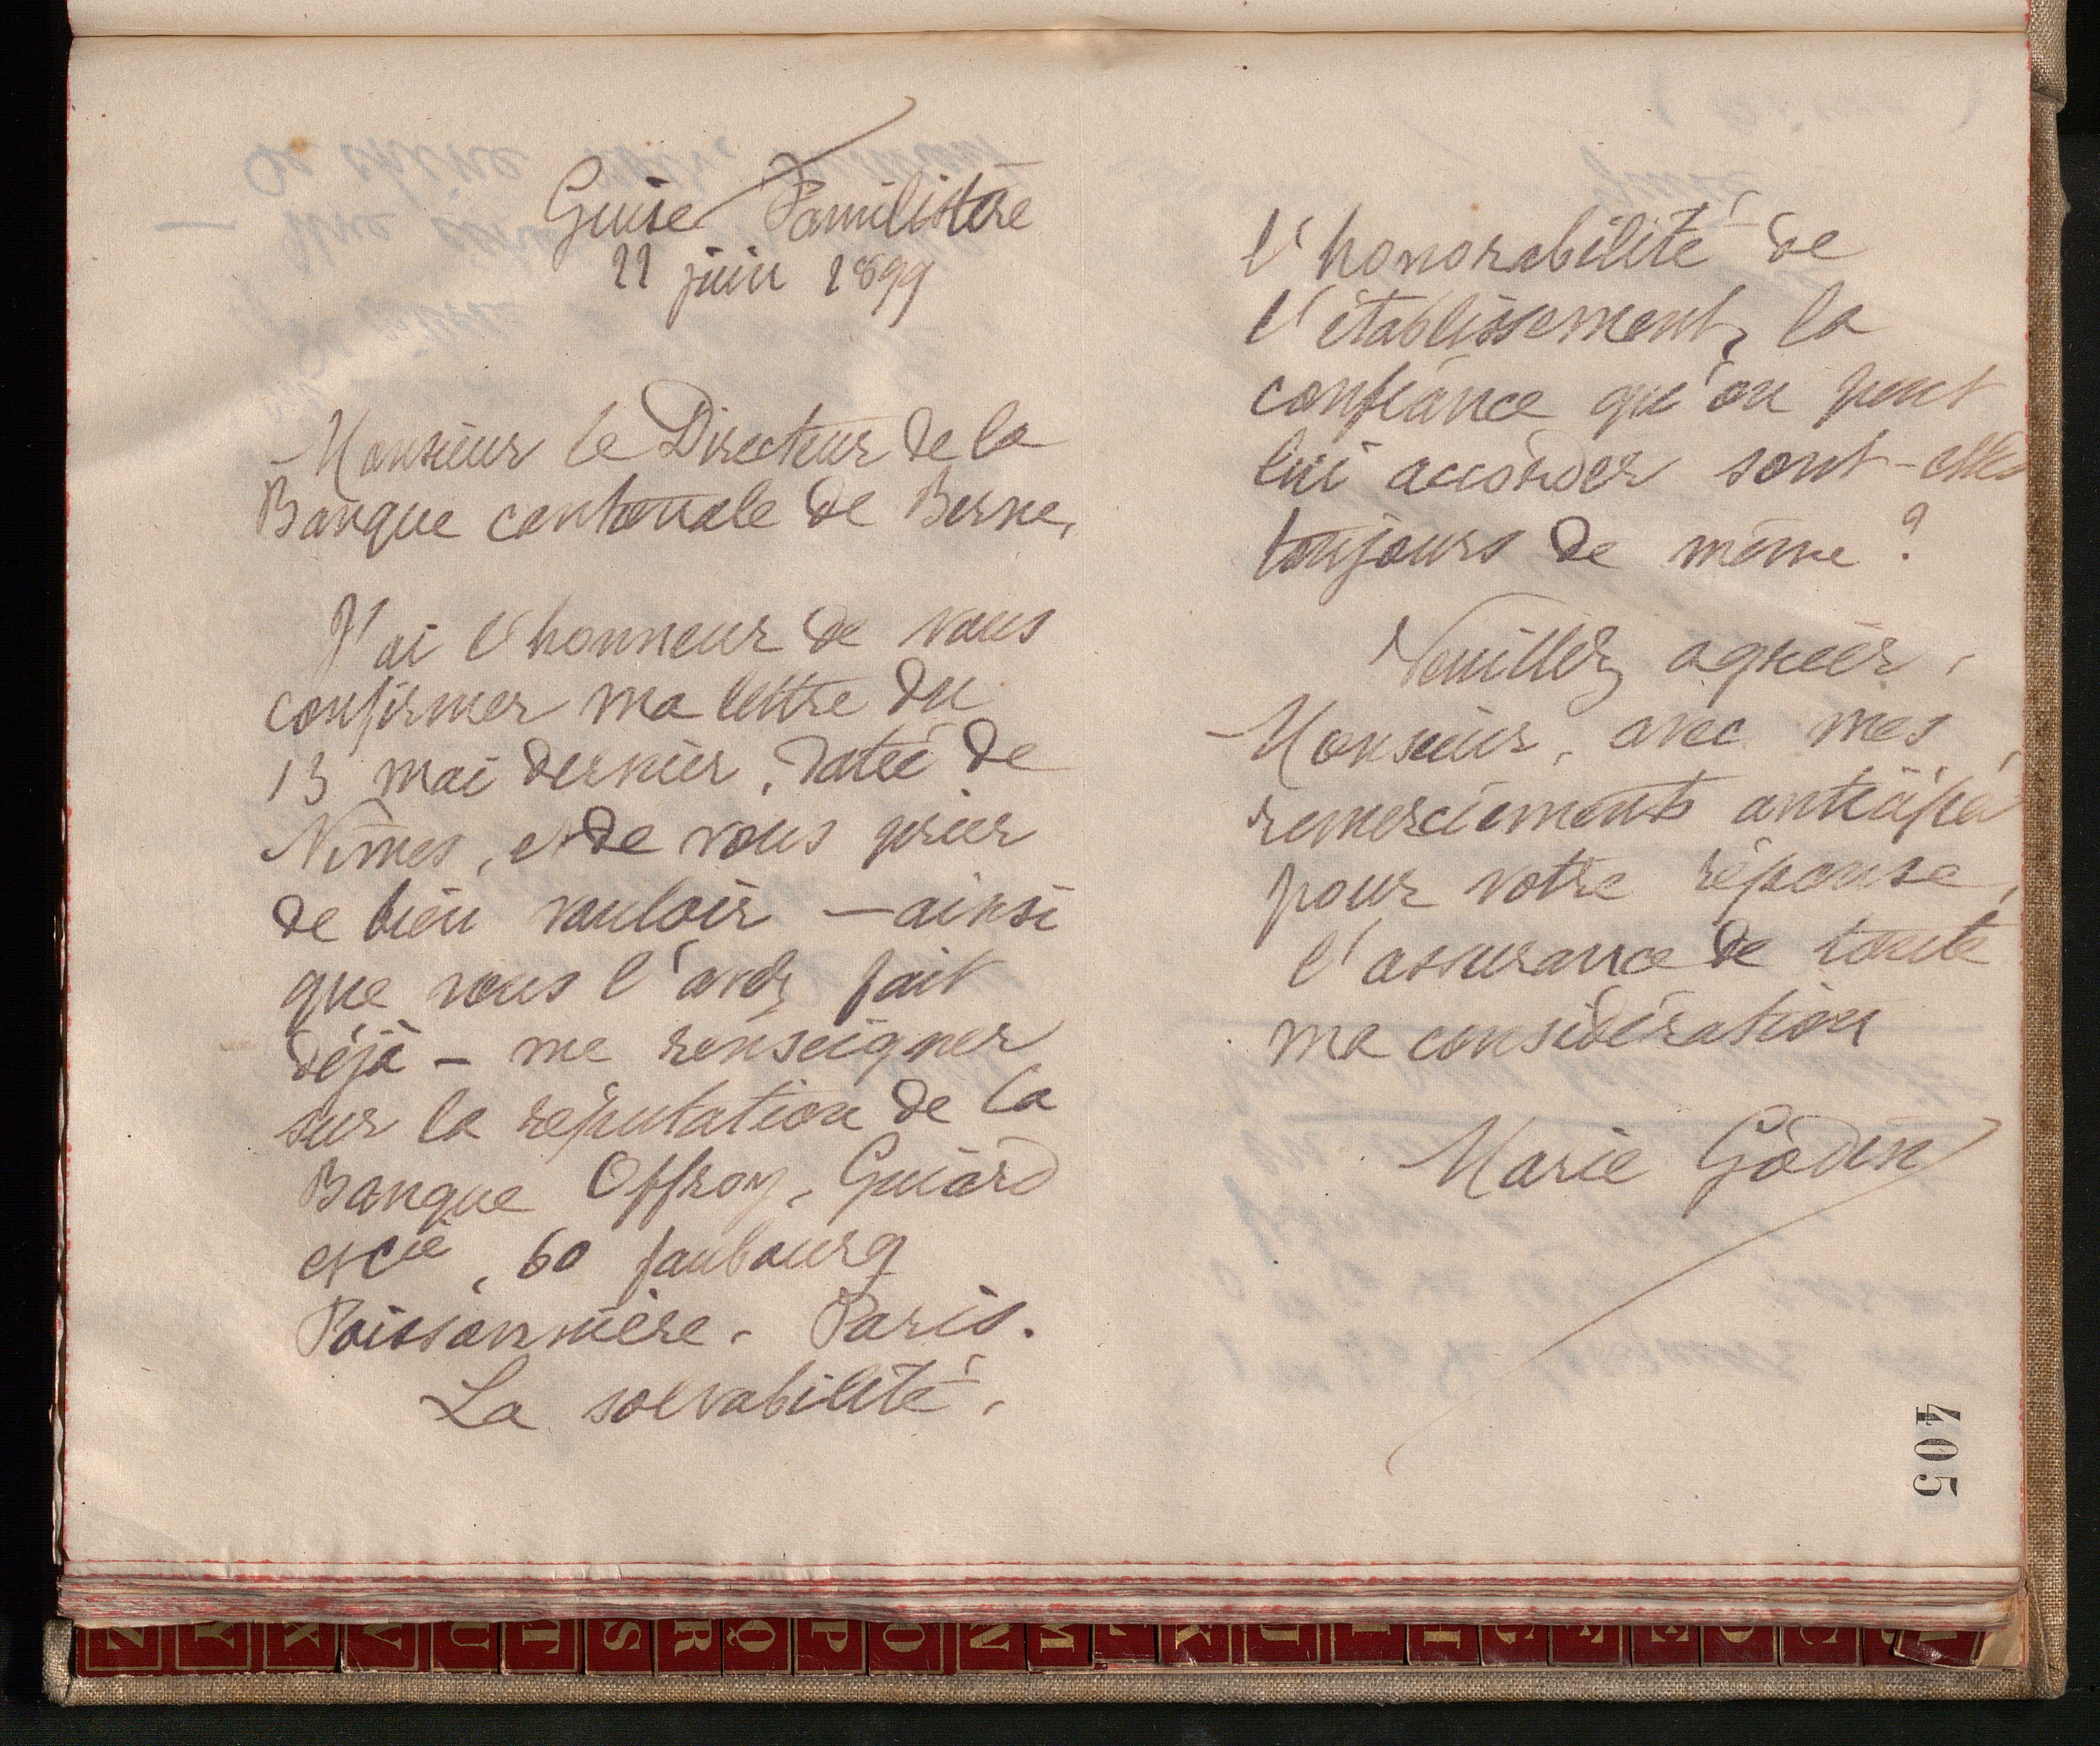 Guise Familistère
22 juin 1899
Monsieur le Directeur de la
Banque cantonale de Berne,
J'ai l'honneur de vous
confirmer ma lettre du
13 mai dernier, datée de
Nîmes, et de vous prier
de bien vouloir — ainsi
que vous l'avez fait
déjà — me renseigner
sur la réputation de la
Banque Offroy, Guiard
et cie, 60 faubourg
Poissonnière. Paris.
La solvabilité,
l'honorabilité de
l'établissement, la
confiance qu'on peut
lui accorder sont-elles
toujours de même ?
Veuillez agréer,
Monsieur, avec mes
remerciements anticipés
pour votre réponse,
l'assurance de toute
ma considération
Marie Godin
405
Z Y X V U T S R Q P O N M L K J I H G F E D C